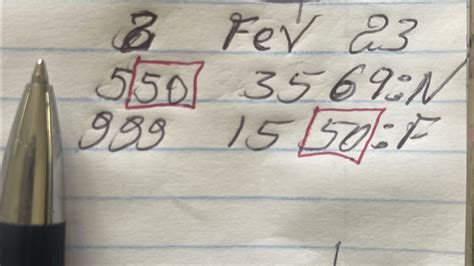 Fev 23
550 3569:N
999 1550:F